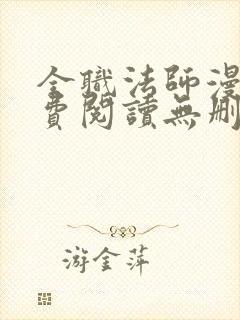 全職法師漫
費閱讀無刪
游金萍